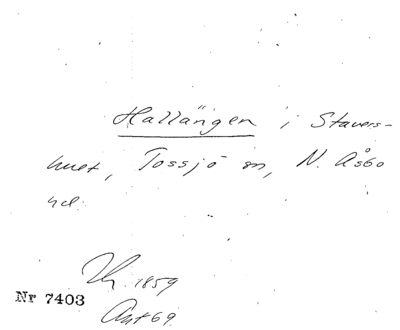 Hallängen i Stavers-
hult, Tossjö sn, N. Åsbo
hd.
1859
Nr 7403
Ant 69